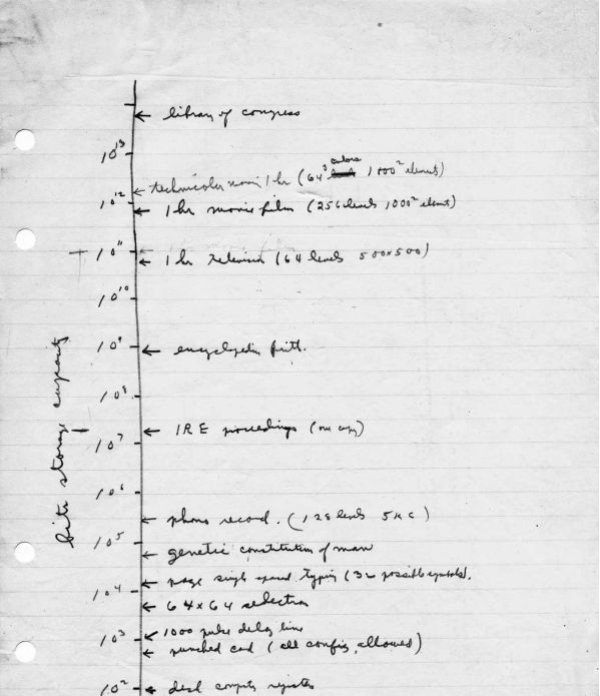 library of congress
10^13
technicolor movie 1 hr (64^3 colors 1000^2 elements)
10^12
1 hr movie film (256 levels 1000^2 elements)
10^11
1 hr television (64 levels 500x500)
10^10
10^9
encyclopedia britt.
10^8
bits storage capacity
IRE proceedings (one copy)
10^7
10^6
phono record. (128 levels 5KC)
10^5
genetic constitution of man
page single spaced typing (32 possible symbols).
10^4
64x64 selection
1000 pulse delay line
10^3
punched card (all config. allowed)
10^2
register